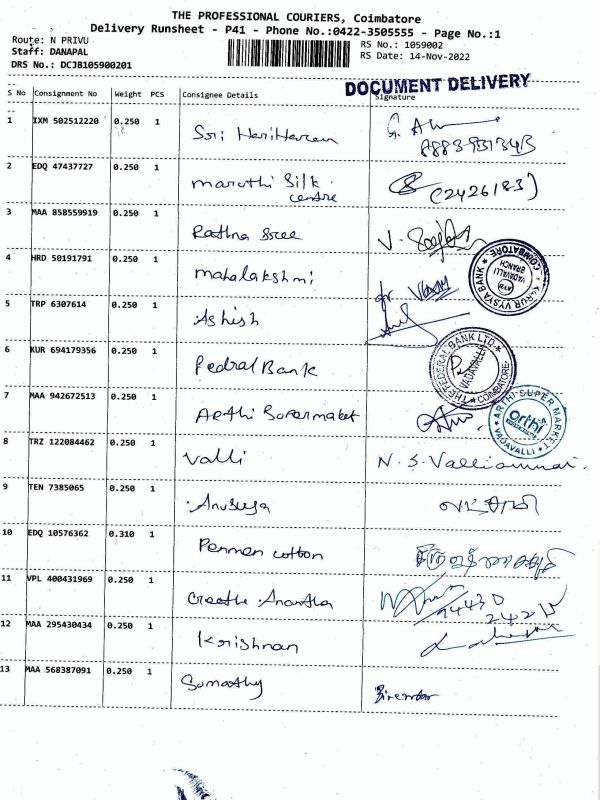 THE PROFESSIONAL COURIERS, Coimbatore
Delivery Runsheet - P41 - Phone No.:0422-3505555 - Page No.:1
Route: N PRIVU
Staff: DANAPAL
DRS No.: DCJB105900201
RS No.: 1059002
RS Date: 14-Nov-2022
DOCUMENT DELIVERY
S No Consignment No Weight PCS Consignee Details Signature
1 IXM 502512220 0.250 1 Sri Hariharan
2 EDQ 47437727 0.250 1 Maruthi Silk centre (2426183)
3 MAA 858559919 0.250 1 Rathna Sree
4 HRD 50191791 0.250 1 mahalakshmi
KARUR VYSYA BANK VADAVALLI BRANCH COIMBATORE
5 TRP 6307614 0.250 1 Ashish
6 KUR 694179356 0.250 1 Fedral Bank
THE FEDERAL BANK LTD. VADAVALLI COIMBATORE
7 MAA 942672513 0.250 1 Arthi Supermaket
ARTHI SUPER MARKET Orthi VADAVALLI
8 TRZ 122084462 0.250 1 Valli N. S. Valliammai
9 TEN 7385065 0.250 1 Anusuya
10 EDQ 10576362 0.310 1 Penmen cotton
11 VPL 400431969 0.250 1 94430 24215
12 MAA 295430434 0.250 1 Krishnan
13 MAA 568387091 0.250 1 Sumathy